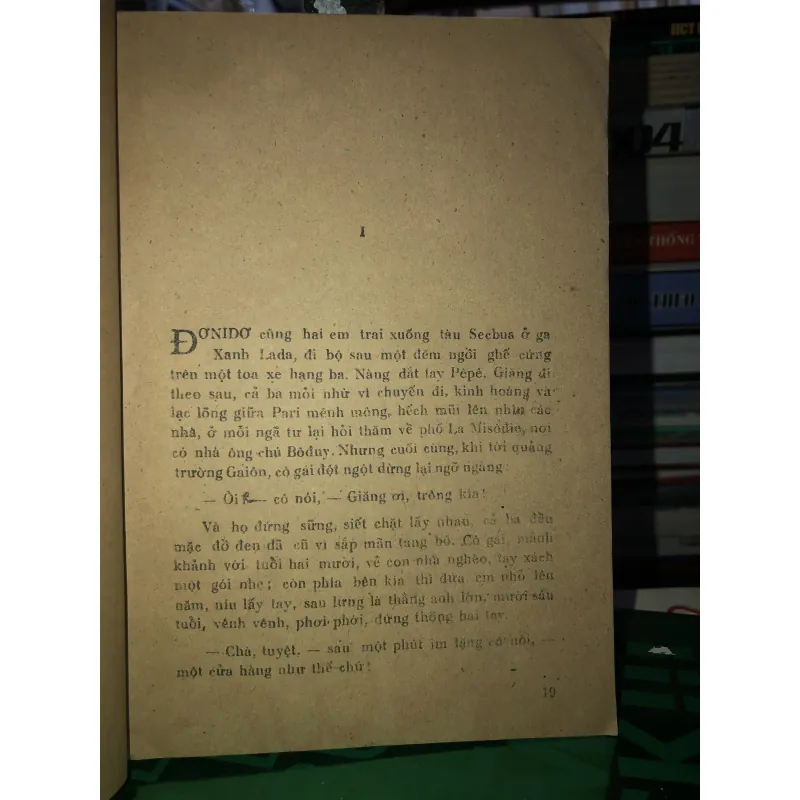 HCT
04
THỐNG
HIEU
I
ĐƠNIDƠ cùng hai em trai xuống tàu Secbua ở ga
Xanh Lada, đi bộ sau một đêm ngồi ghế cứng
trên một toa xe hạng ba. Nàng dắt tay Pêpê. Giăng đi
theo sau, cả ba mỏi nhừ vì chuyến đi, kinh hoàng và
lạc lõng giữa Pari mênh mông, hếch mũi lên nhìn các
nhà, ở mỗi ngã tư lại hỏi thăm về phố La Misôdie, nơi
có nhà ông chú Bôđuy. Nhưng cuối cùng, khi tới quảng
trường Gaiôn, cô gái đột ngột dừng lại ngỡ ngàng:
— Ôi! — cô nói, — Giăng ơi, trông kìa!
Và họ đứng sững, siết chặt lấy nhau, cả ba đều
mặc đồ đen đã cũ vì sắp mãn tang bố. Cô gái, mảnh
khảnh với tuổi hai mươi, vẻ con nhà nghèo, tay xách
một gói nhẹ; còn phía bên kia thì đứa em nhỏ lên
năm, níu lấy tay, sau lưng là thằng anh lớn, mười sáu
tuổi, vênh vênh, phơi phới, đứng thõng hai tay.
— Chà, tuyệt, — sau một phút im lặng cô nói, —
một cửa hàng như thế chứ!
19